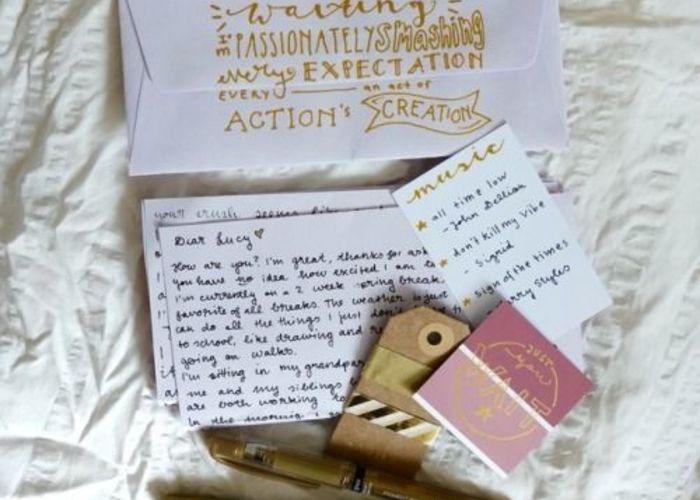 waiting
I'm PASSIONATELY SMashing
every EXPECTATION
EVERY an act of
ACTION's CREATION
music
all time low
- John Bellion
don't kill my vibe
- Sigrid
sign of the times
Harry Styles
your crush seems
Dear Lucy
How are you? I'm great, thanks for ask
you have no idea how excited I am to
I'm currently on a 2 week spring break
favorite of all breaks. The weather is just
can do all the things I just don't
to school, like drawing and re
going on walks.
I'm sitting in my grandpar
me and my siblings
are both working to
In the morning I
JUST
you
WAIT